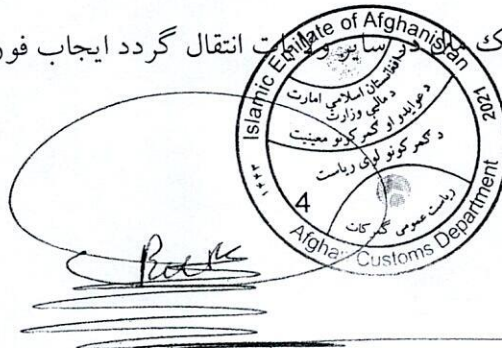 ک ملی در سایر ولایات انتقال گردد ایجاب فور
Islamic Emirate of Afghanistan
2021
۱۴۴۳
د افغانستان اسلامي امارت
د مالیې وزارت
د عوایدو او ګمرکونو معینیت
د ګمرکونو لوی ریاست
ریاست عمومی گمرکات
4
Afghan Customs Department